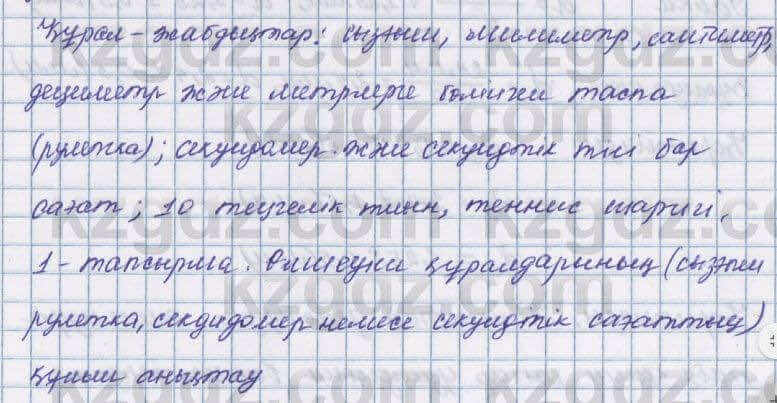 Құрал-жабдықтар: сызғыш, миллиметр, сантиметр,
дециметр және метрлерге бөлінген таспа
(рулетка); секундомер және секундтік тілі бар
сағат; 10 теңгелік тиын, теннис шаригі.
1-тапсырма. Өлшеуіш құралдарының (сызғыш
рулетка, секдидомер немесе секундтік сағаттың)
құнын анықтау